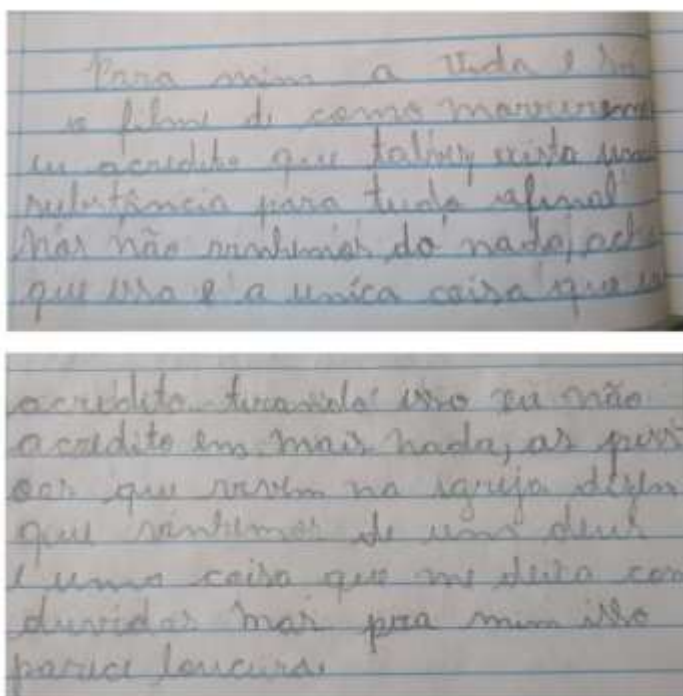 Para mim a vida e só
o filme de como morreremos
eu acredito que talvez exista uma
substância para tudo afinal
Nós não vinhemos do nada, acho
que isso e a unica coisa que eu
acredito tirando isso eu não
acredito em mais nada, as pess
oas que vivem na igreja dizem
que vinhemos de um deus
e uma coisa que me deixa com
duvidas mas pra mim isso
parece loucura.